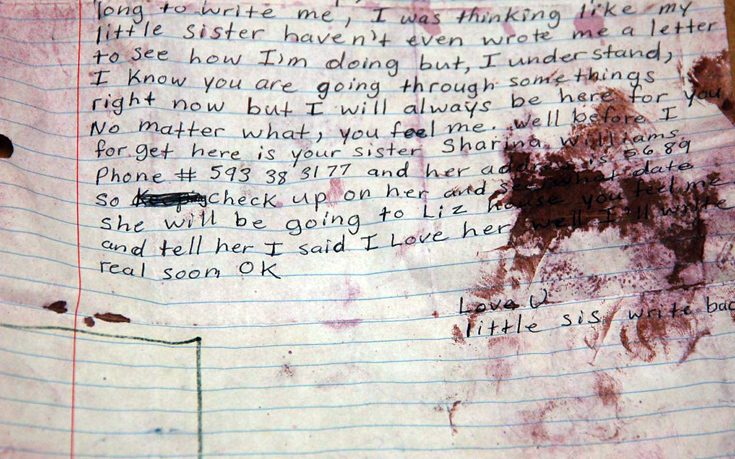 long to write me, I was thinking like my
little sister haven't even wrote me a letter
to see how I'm doing but, I understand,
I know you are going through some things
right now but I will always be here for you
No matter what, you feel me. Well before I
for get here is your sister Sharina Williams
Phone # 593 38 3177 and her address is 5689
so check up on her and see what date
she will be going to Liz house you feel me.
and tell her I said I Love her, well I'll write
real soon OK
Love U
little sis write bac